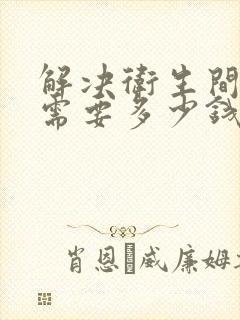 解决衛生間
需要多少钱
肖恩·威廉姆